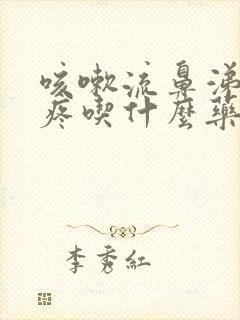 咳嗽流鼻涕
疼喫什麼藥
李秀紅